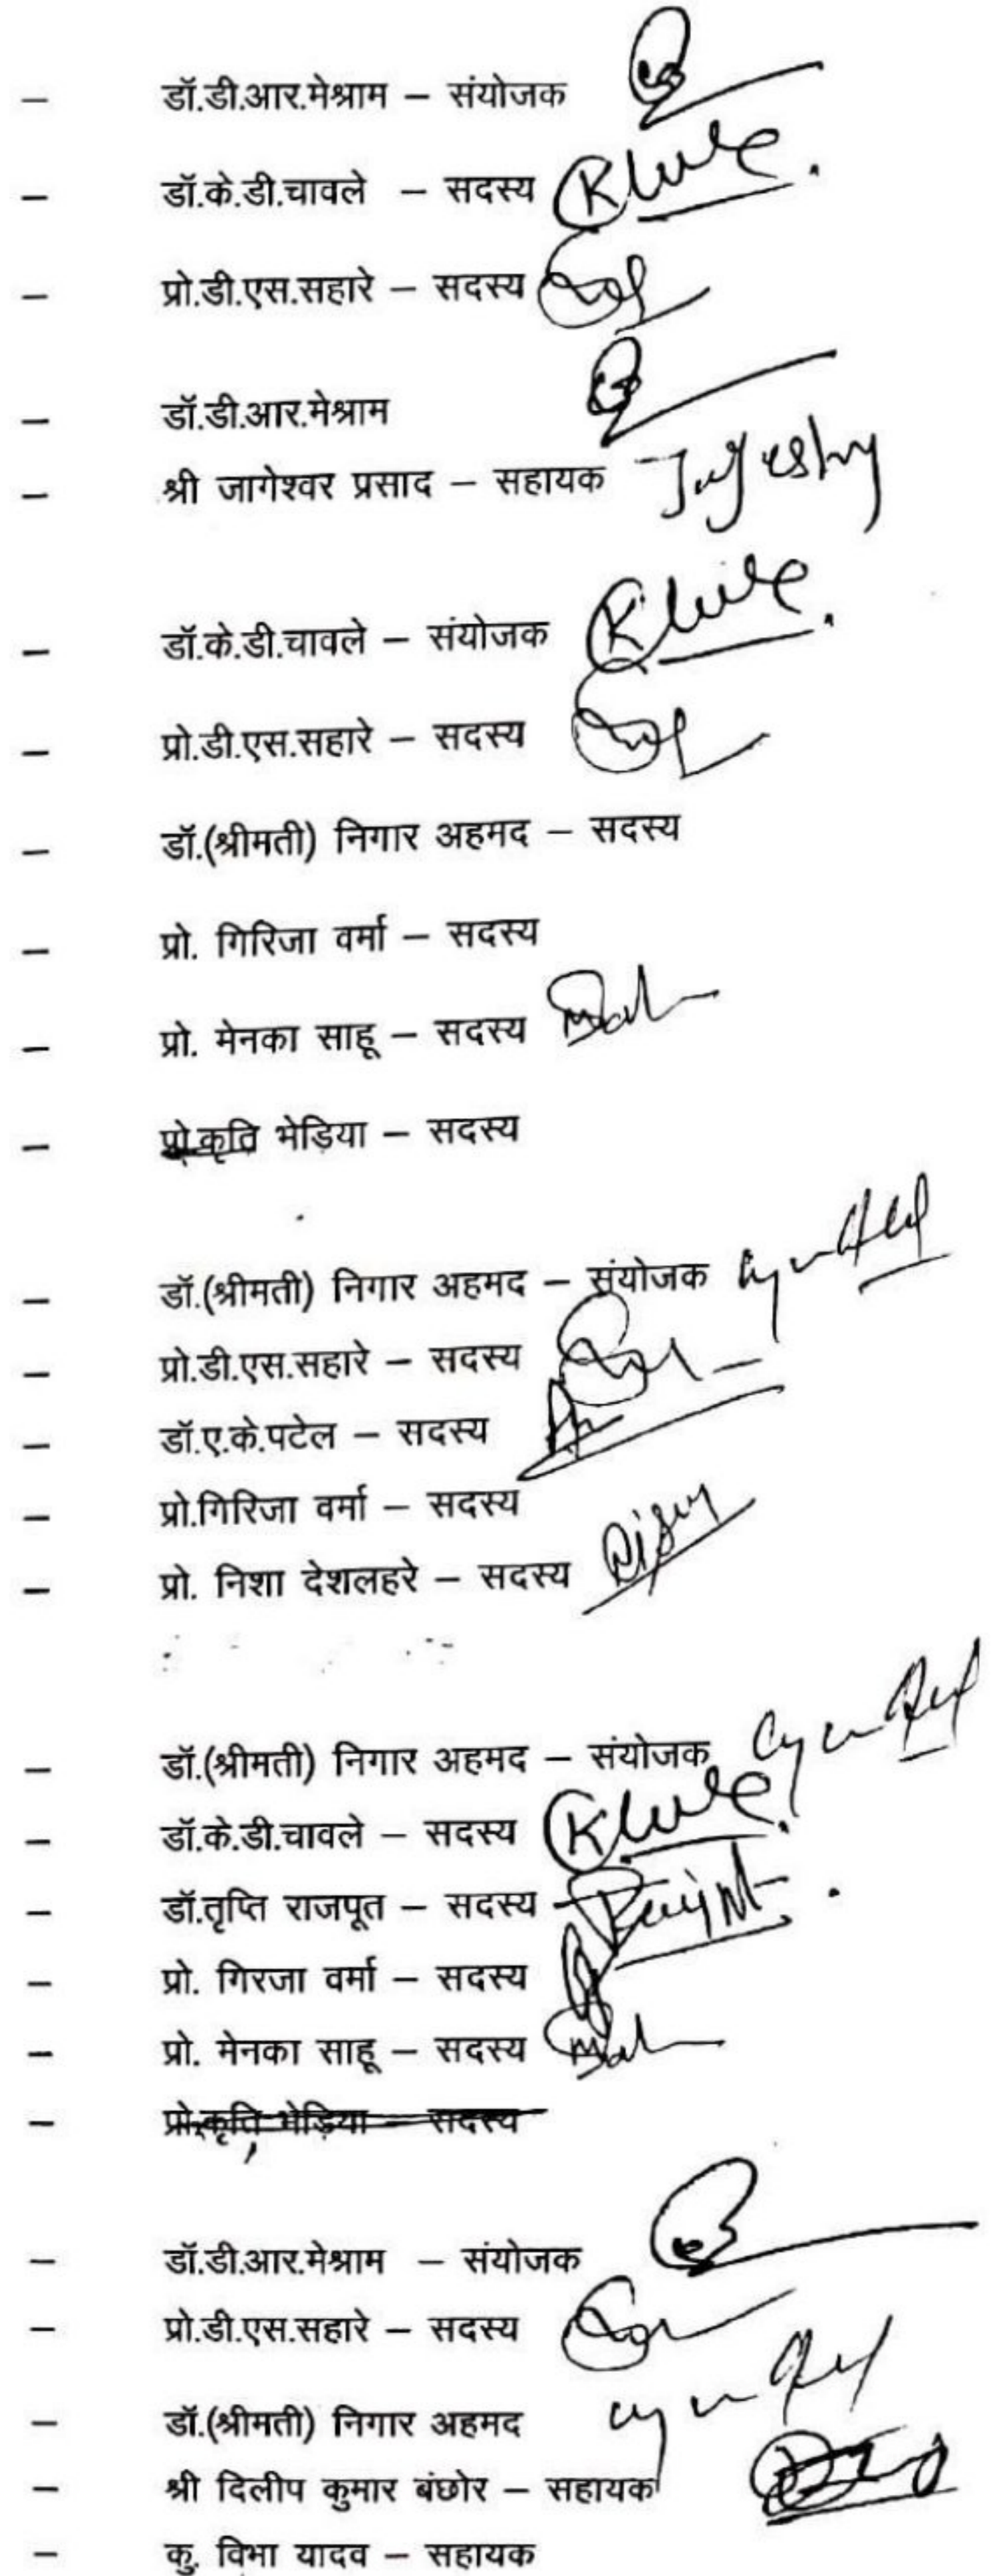 – डॉ.डी.आर.मेश्राम – संयोजक
– डॉ.के.डी.चावले – सदस्य
– प्रो.डी.एस.सहारे – सदस्य
– डॉ.डी.आर.मेश्राम
– श्री जागेश्वर प्रसाद – सहायक
– डॉ.के.डी.चावले – संयोजक
– प्रो.डी.एस.सहारे – सदस्य
– डॉ.(श्रीमती) निगार अहमद – सदस्य
– प्रो. गिरिजा वर्मा – सदस्य
– प्रो. मेनका साहू – सदस्य
– प्रो.कृति भेड़िया – सदस्य
– डॉ.(श्रीमती) निगार अहमद – संयोजक
– प्रो.डी.एस.सहारे – सदस्य
– डॉ.ए.के.पटेल – सदस्य
– प्रो.गिरिजा वर्मा – सदस्य
– प्रो. निशा देशलहरे – सदस्य
– डॉ.(श्रीमती) निगार अहमद – संयोजक
– डॉ.के.डी.चावले – सदस्य
– डॉ.तृप्ति राजपूत – सदस्य
– प्रो. गिरजा वर्मा – सदस्य
– प्रो. मेनका साहू – सदस्य
– प्रो.कृति भेड़िया – सदस्य
– डॉ.डी.आर.मेश्राम – संयोजक
– प्रो.डी.एस.सहारे – सदस्य
– डॉ.(श्रीमती) निगार अहमद
– श्री दिलीप कुमार बंछोर – सहायक
– कु. विभा यादव – सहायक